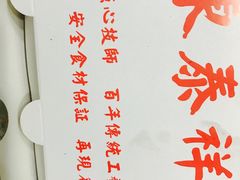 泰祥
心技師 百年傳統工
安全食材保証 再現